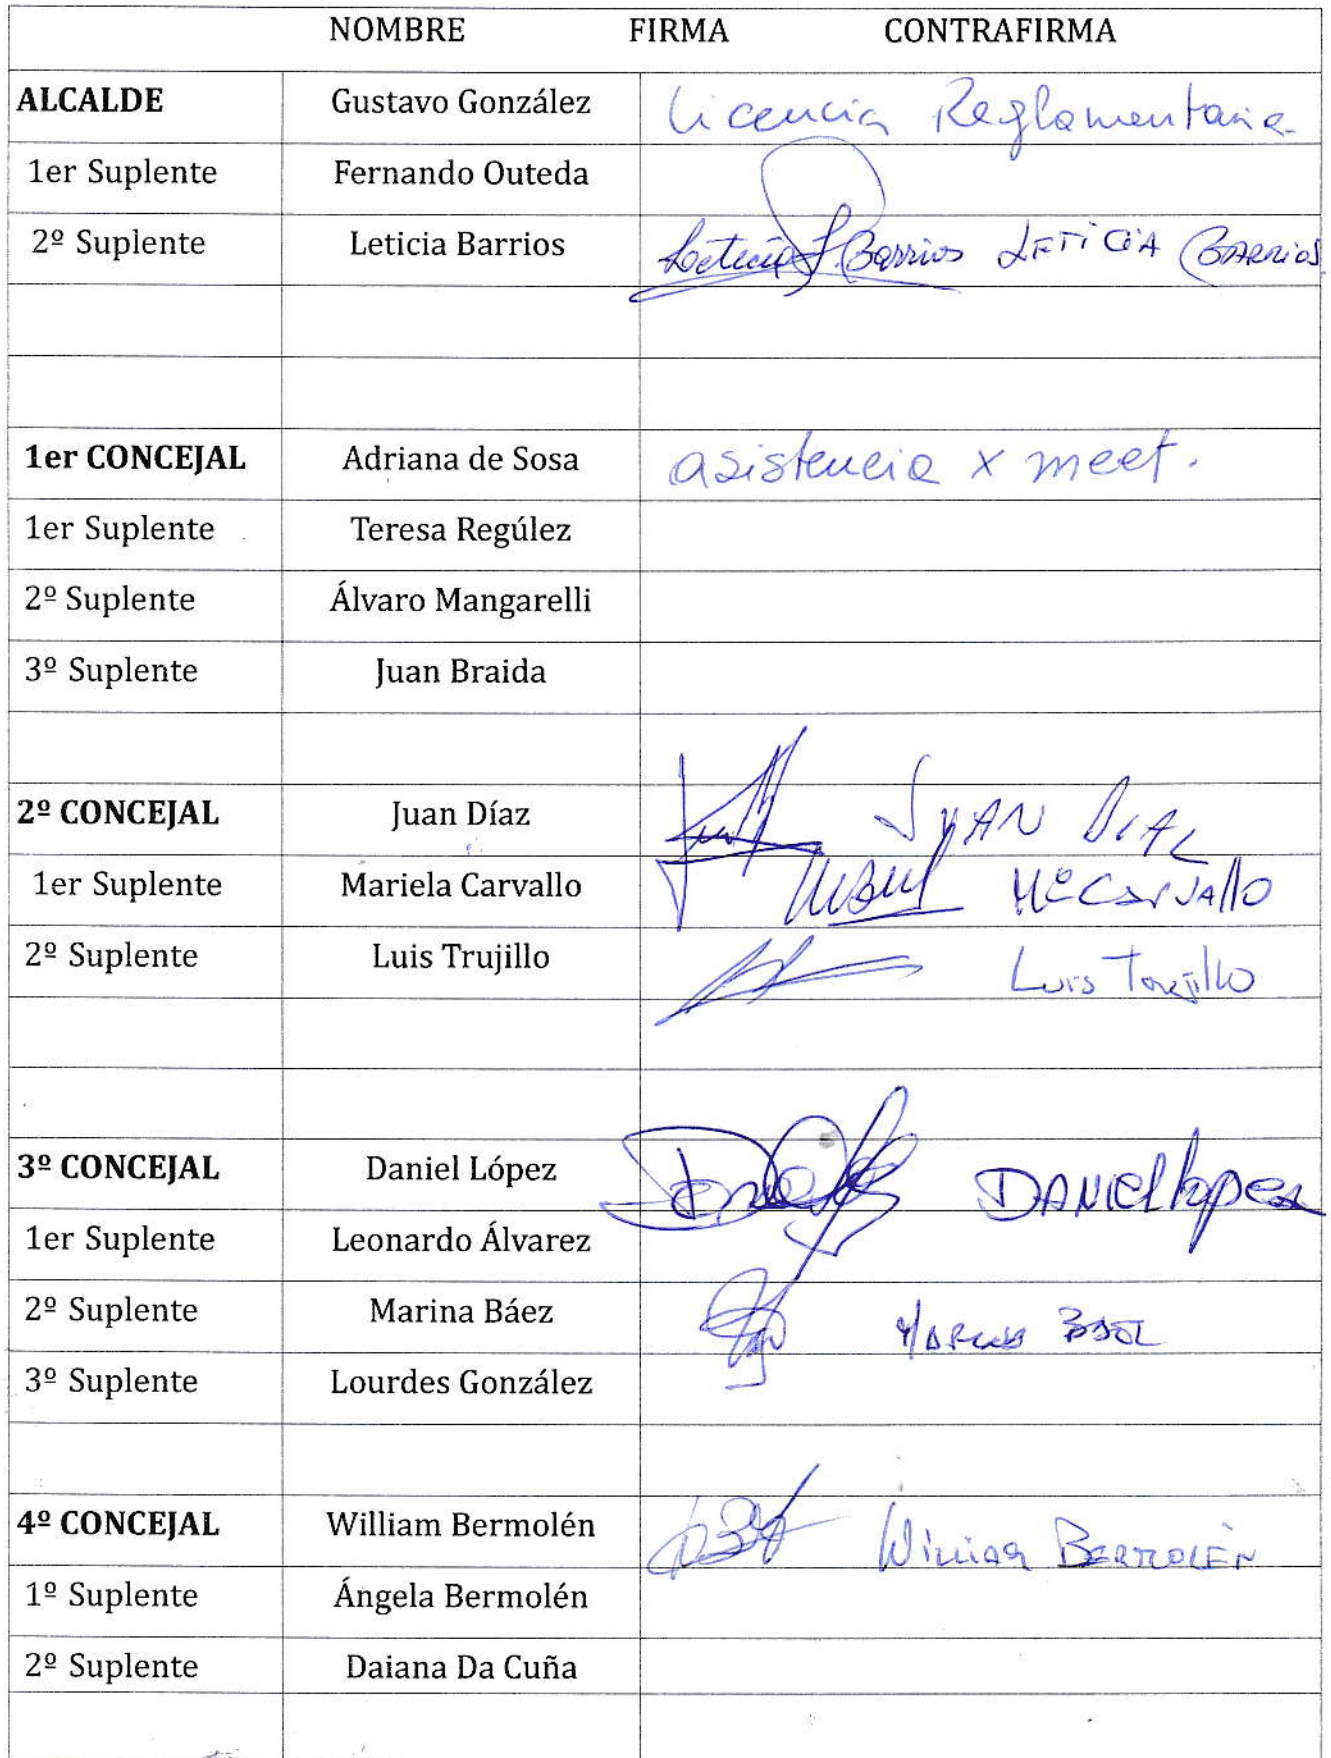 NOMBRE FIRMA CONTRAFIRMA
ALCALDE Gustavo González Licencia Reglamentaria.
1er Suplente Fernando Outeda
2º Suplente Leticia Barrios Leticia Barrios LETiCiA BARRiOS
1er CONCEJAL Adriana de Sosa asistencia x meet.
1er Suplente Teresa Regúlez
2º Suplente Álvaro Mangarelli
3º Suplente Juan Braida
2º CONCEJAL Juan Díaz JUAN DIAZ
1er Suplente Mariela Carvallo Mª Carvallo
2º Suplente Luis Trujillo Luis Trujillo
3º CONCEJAL Daniel López DANiel lopez
1er Suplente Leonardo Álvarez
2º Suplente Marina Báez
3º Suplente Lourdes González
4º CONCEJAL William Bermolén William BERMOLÉN
1º Suplente Ángela Bermolén
2º Suplente Daiana Da Cuña